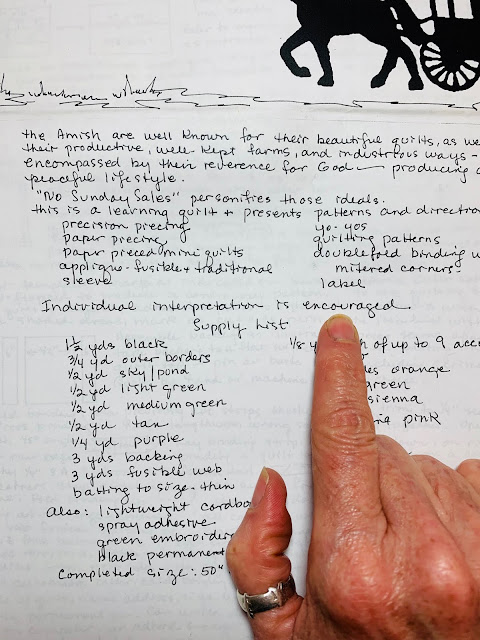 the Amish are well known for their beautiful quilts, as we
their productive, well kept farms, and industrious ways -
encompassed by their reverence for God - producing a
peaceful lifestyle.
"No Sunday Sales" personifies those ideals.
this is a learning quilt + presents patterns and direction
precision piecing
yo-yos
paper piecing
quilting patterns
paper pieced mini quilts
doublefold binding w
applique-fusible + traditional
mitered corners
sleeve
label
Individual interpretation is encouraged.
Supply List
1½ yds black
⅛ y of up to 9 acce
¾ yd outer borders
orange
½ yd sky/pond
green
½ yd light green
sienna
½ yd medium green
pink
½ yd tan
¼ yd purple
3 yds backing
3 yds fusible web
batting to size-thin
Also: lightweight cardbo
spray adhesive
green embroider
black permanent
Completed size: 50"